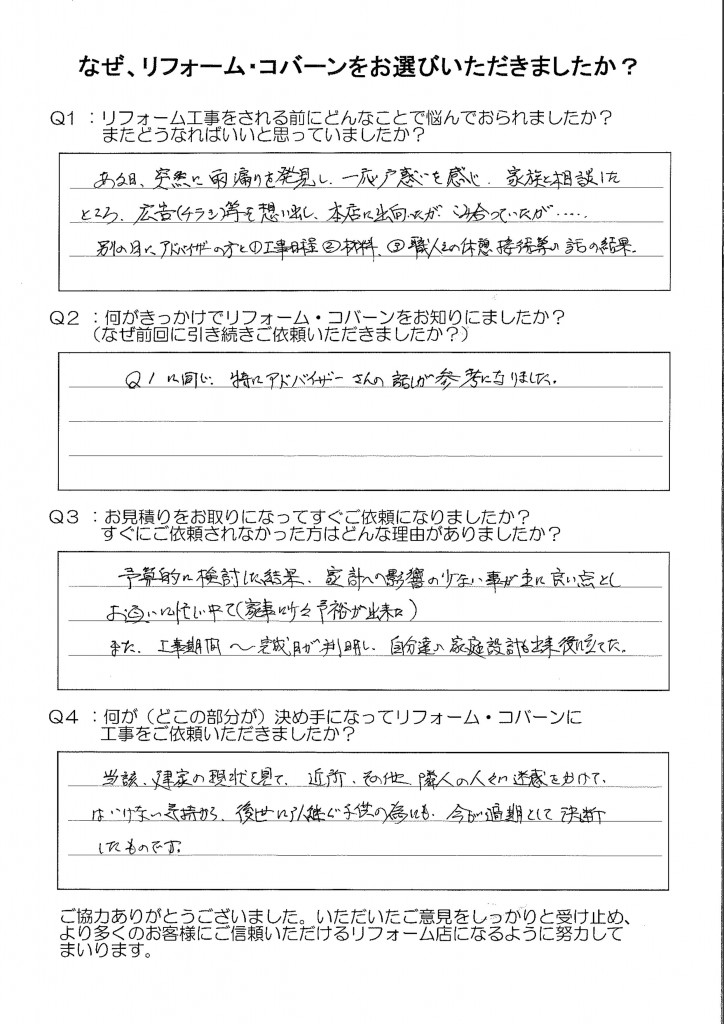 なぜ、リフォーム・コバーンをお選びいただきましたか？
Q1 ：リフォーム工事をされる前にどんなことで悩んでおられましたか？
またどうなればいいと思っていましたか？
ある日、突然に雨漏りを発見し、一応戸惑いを感じ、家族と相談した
ところ、広告(チラシ)等を想い出し、本店に出向ったが、込合っていたが……
別の日に、アドバイザーの方と①工事日程②材料、③職人との休憩接待等の話の結果。
Q2 ：何がきっかけでリフォーム・コバーンをお知りにまましたか？
（なぜ前回に引き続きご依頼いただきましたか？）
Q1に同じ、特にアドバイザーさんの話しが参考になりました。
Q3 ：お見積りをお取りになってすぐご依頼になりましたか？
すぐにご依頼されなかった方はどんな理由がありましたか？
予算的に検討した結果、家計への影響の少ない事が主に良い点とし
お互いに忙い中で(家事に少々予裕が出来た)
また、工事期間〜完成日が判明し、自分達の家庭設計も出来役に立てた。
Q4 ：何が（どこの部分が）決め手になってリフォーム・コバーンに
工事をご依頼いただきましたか？
当該、建家の現状を見て、近所、その他、隣人の人々に迷惑をかけて、
はいけない気持から、後世に引継ぐ子供の為にも、今が適期として決断
したものです。
ご協力ありがとうございました。いただいたご意見をしっかりと受け止め、
より多くのお客様にご信頼いただけるリフォーム店になるように努力して
まいります。